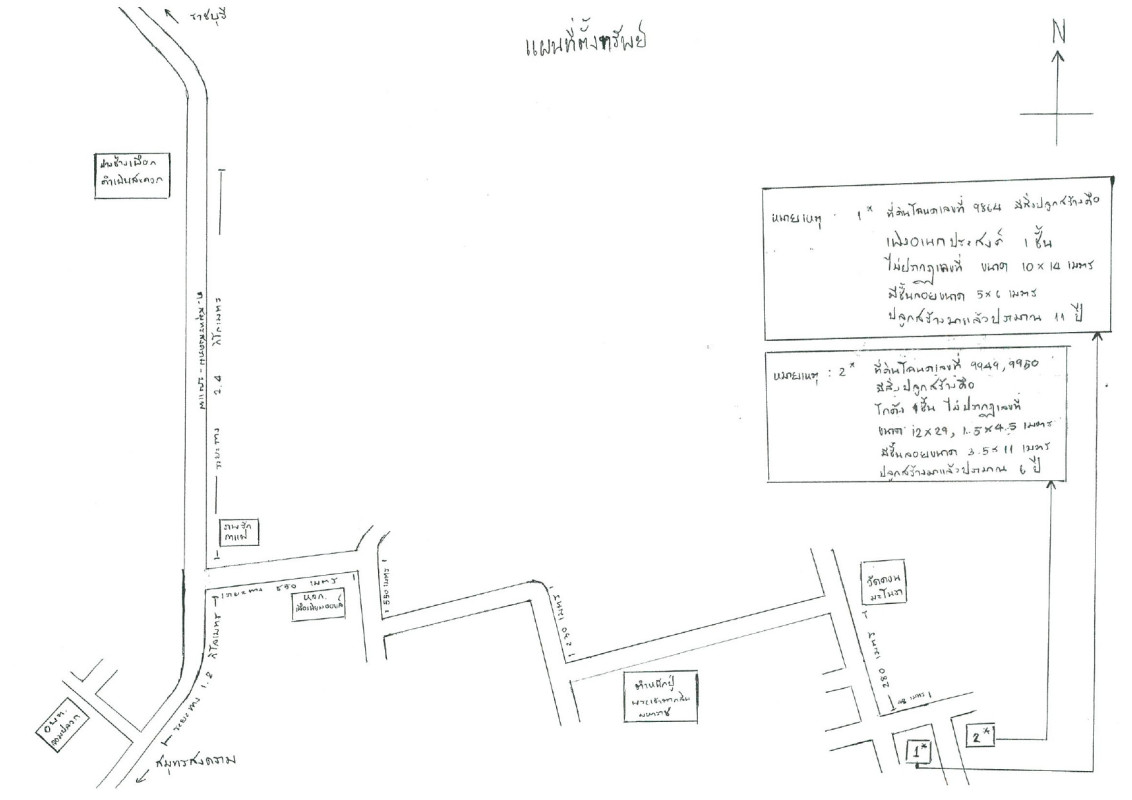 ราชบุรี
แผนที่ตั้งทรัพย์
N
ดำเนินสะดวก
หมายเหตุ : 1* ที่ดินโฉนดเลขที่ 9864 มีสิ่งปลูกสร้างคือ
เพิงอเนกประสงค์ 1 ชั้น
ไม่ปรากฏเลขที่ ขนาด 10 x 14 เมตร
มีชั้นลอยขนาด 5 x 6 เมตร
ปลูกสร้างมาแล้วประมาณ 11 ปี
หมายเหตุ : 2* ที่ดินโฉนดเลขที่ 9949, 9950
มีสิ่งปลูกสร้างคือ
โกดัง 1 ชั้น ไม่ปรากฏเลขที่
ขนาด 12 x 29, 1.5 x 4.5 เมตร
มีชั้นลอยขนาด 3.5 x 11 เมตร
ปลูกสร้างมาแล้วประมาณ 6 ปี
ถ.สมุทรสงคราม - บางแพ
ระยะทาง 2.4 กิโลเมตร
กาแฟ
ระยะทาง 550 เมตร
หจก.
550 เมตร
230 เมตร
วัดดอน
มะโนรา
280 เมตร
เมตร
ตำหนักปู่
พระเจ้าตากสิน
มหาราช
ระยะทาง 1.2 กิโลเมตร
อบต.
จอมปลวก
สมุทรสงคราม
1*
2*